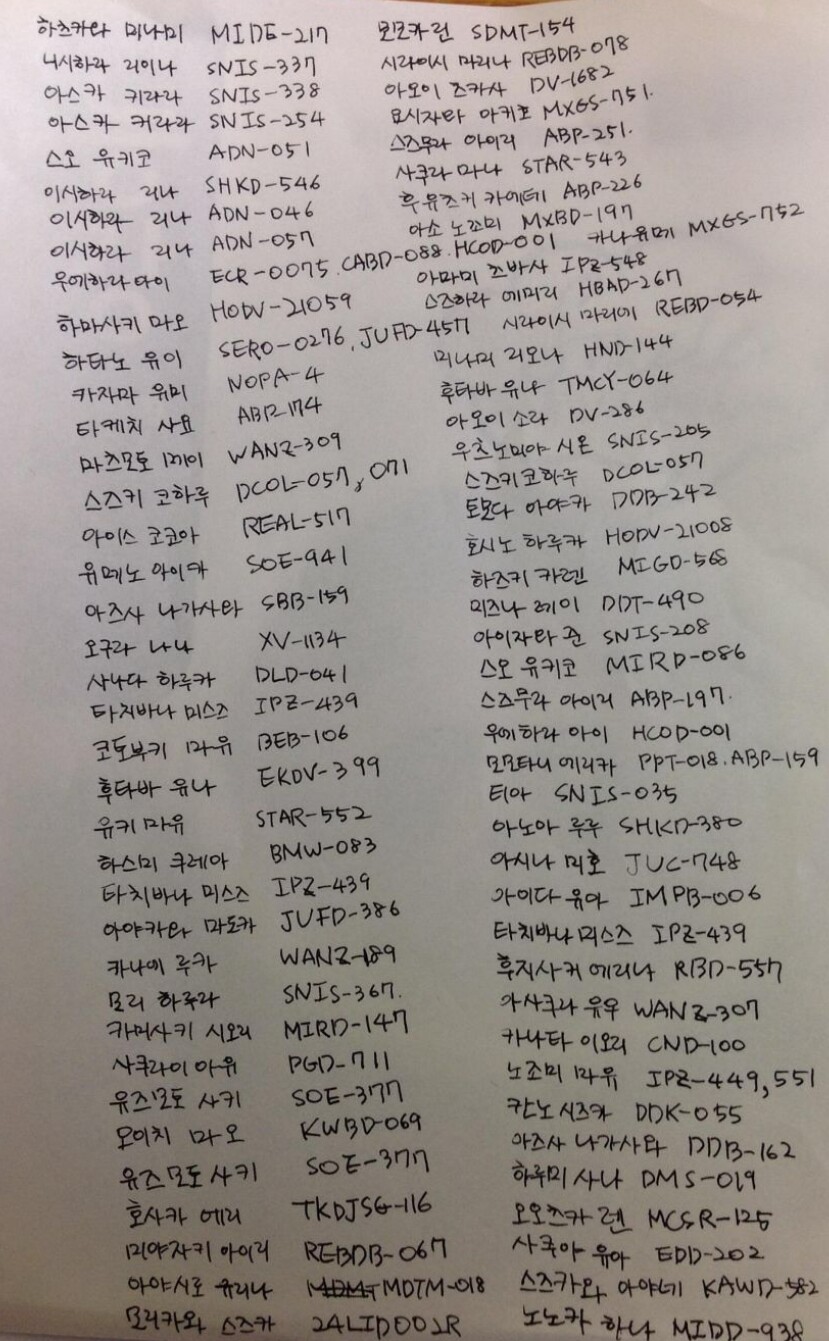 하즈키와 미나미 MIDE-217
니시하라 리이나 SNIS-337
아스카 키라라 SNIS-338
아스카 키라라 SNIS-254
스오 유키코 ADN-051
이시하라 리나 SHKD-546
이시하라 리나 ADN-046
이시하라 리나 ADN-057
우에하라 아이 ECR-0075. CABD-088. HCOD-001
하마사키 마오 HODV-21059
하타노 유이 SERO-0276, JUFD-457
카자마 유미 NOPA-4
타케치 사요 ABP-174
마츠모토 메이 WANZ-309
스즈키 코하루 DCOL-057, 071
아이스 코코아 REAL-517
유메노 아이카 SOE-941
아즈사 나가사와 SBB-159
오구라 나나 XV-1134
사나다 하루카 DLD-041
타치바나 미스즈 IPZ-439
코토부키 마유 BEB-106
후타바 유나 EKDV-399
유키 마유 STAR-552
하스미 쿠레아 BMW-083
타치바나 미스즈 IPZ-439
아야카와 마도카 JUFD-386
카나에 루카 WANZ-189
모리 하루라 SNIS-367.
카미사키 시오리 MIRD-147
사쿠라이 아유 PGD-711
유즈모토 사키 SOE-377
모이치 마오 KWBD-069
유즈모토 사키 SOE-377
호사카 에리 TKDJSG-116
미야자키 아이리 REBDB-067
아야시로 유리나 MDTM-018
모리카와 스즈카 24LID001R
모모카 린 SDMT-154
시라이시 마리나 REBDB-078
아오이 츠카사 DV-1682
요시자와 아키호 MXGS-751.
스즈무라 아이리 ABP-251.
사쿠라 마나 STAR-543
후유즈키 카에데 ABP-226
아소 노조미 MXBD-197
카나 유메 MXGS-752
아마미 츠바사 IPZ-548
스즈하라 에미리 HBAD-267
시라이시 마리에 REBD-054
미나미 리오나 HND-144
후타바 유나 TMCY-064
아오이 소라 DV-286
우츠노미야 시온 SNIS-205
스즈키 코하루 DCOL-057
토모다 아야카 DDB-242
호시노 하루카 HODV-21008
하즈키 카렌 MIGD-568
미즈나 레이 DDT-490
아이자와 준 SNIS-208
스오 유키코 MIRD-086
스즈무라 아이리 ABP-197.
우에하라 아이 HCOD-001
모모타니 에리카 PPT-018. ABP-159
티아 SNIS-035
아노아 루루 SHKD-380
아시나 미호 JUC-748
아이다 유아 IMPB-006
타치바나 미스즈 IPZ-439
후지사키 에리나 RBD-557
아사쿠라 유우 WANZ-307
카나타 이오리 CND-100
노조미 마유 IPZ-449, 551
칸노 시즈카 DDK-055
아즈사 나가사와 DDB-162
하루미 사나 DMS-019
오오츠카 렌 MCSR-125
사쿠야 유아 EDD-202
스즈카와 아야네 KAWD-582
노노카 하나 MIDD-938